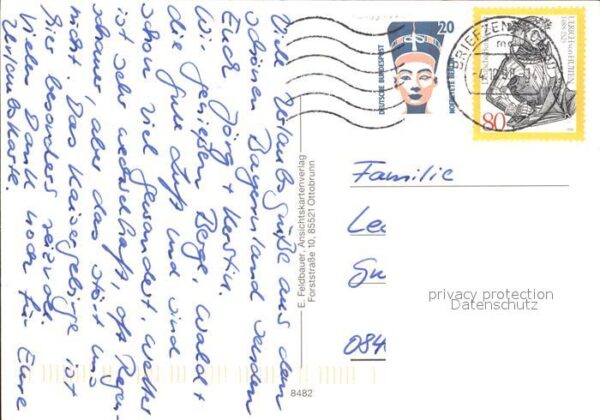 Viele Urlaubsgrüße aus dem
schönen Bayernland senden
Euch Jörg + Kerstin.
Wir genießen Berge, Wald +
die gute Luft und sind
schon viel gewandert. Wetter
ist sehr wechselhaft, oft Regen-
schauer, aber das stört uns
nicht. Das Kaisergebirge ist
hier besonders reizvoll.
Vielen Dank noch für Eure
Urlaubskarte.
E. Feldbauer, Ansichtskartenverlag
Forststraße 10, 85521 Ottobrunn
8482
DEUTSCHE BUNDESPOST
20
NOFRETETE BERLIN
BRIEFZENTRUM
80
Familie
Le
Su
084
privacy protection
Datenschutz